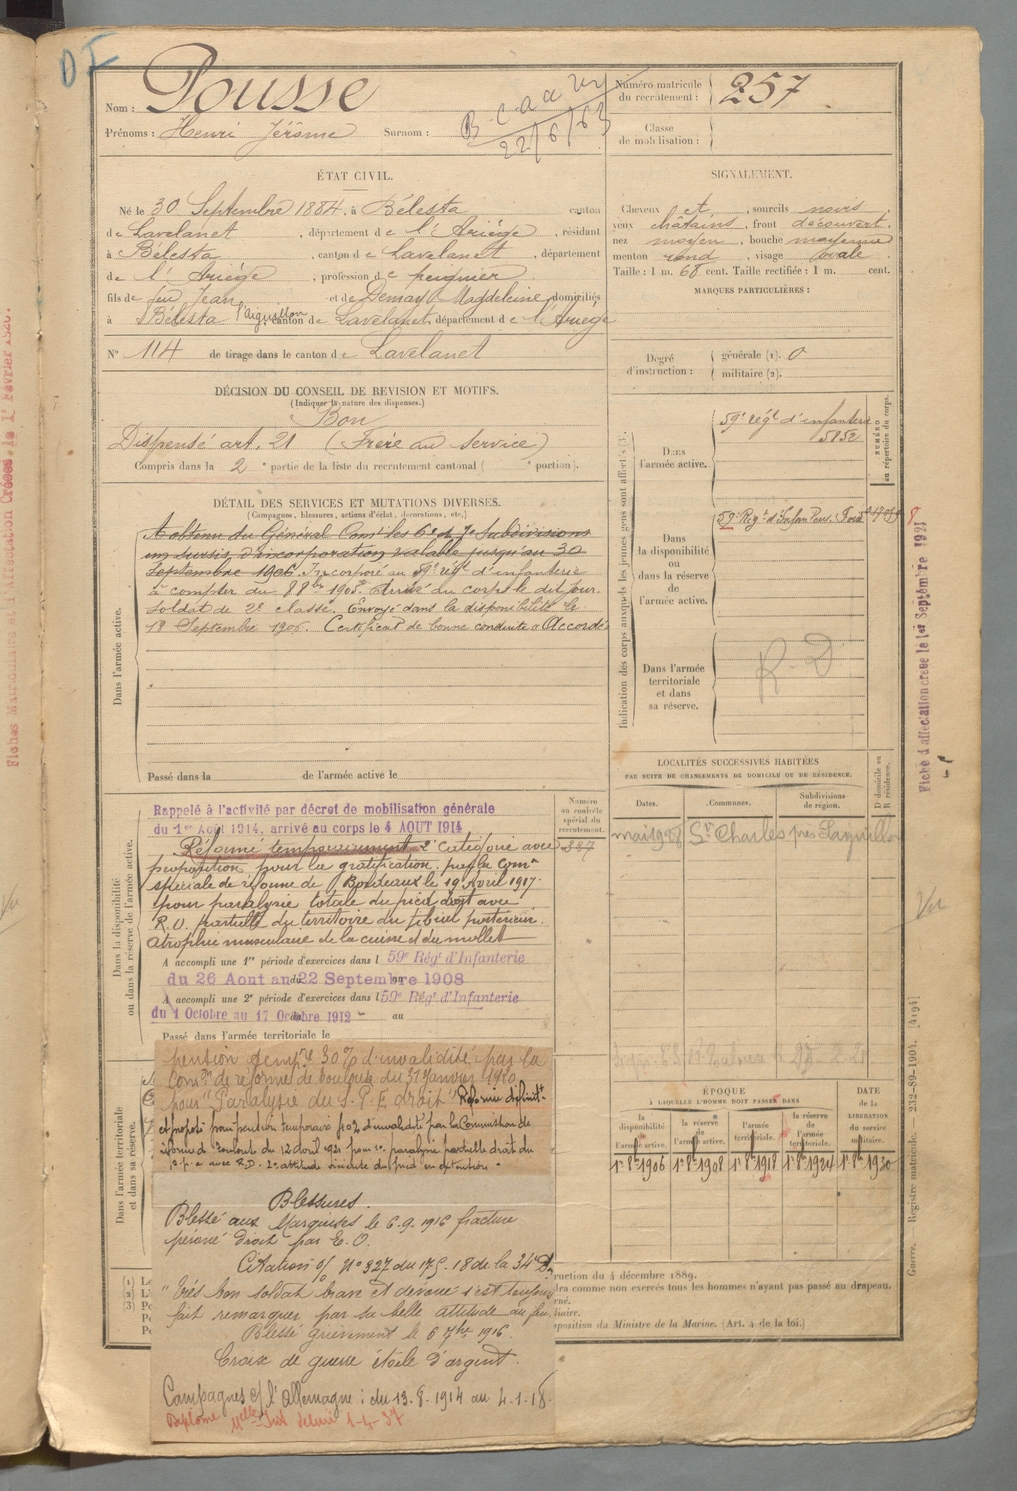 DF
Nom : Pousse
Prénoms : Henri Jérôme Surnom :
22/6/63
Numéro matricule du recrutement : 257
Classe de mobilisation :
ÉTAT CIVIL.
Né le 30 Septembre 1884, à Bélesta canton
de Lavelanet, département de l'Ariège, résidant
à Bélesta, canton de Lavelanet, département
de l'Ariège, profession de peignier
fils de feu Jean et de Demay Magdeleine, domiciliés
à Bélesta l'aiguillon, canton de Lavelanet, département de l'Ariège
N° 114 de tirage dans le canton de Lavelanet
SIGNALEMENT.
Cheveux et, sourcils noirs
yeux châtains, front découvert,
nez moyen, bouche moyenne
menton rond, visage ovale
Taille : 1 m. 68 cent. Taille rectifiée : 1 m. cent.
MARQUES PARTICULIÈRES :
Degré d'instruction : générale (1). 0
militaire (2).
DÉCISION DU CONSEIL DE REVISION ET MOTIFS.
(Indiquer la nature des dispenses.)
Bon
Dispensé art. 21 (Frère au service)
Compris dans la 2e partie de la liste du recrutement cantonal ( portion).
DÉTAIL DES SERVICES ET MUTATIONS DIVERSES.
(Campagnes, blessures, actions d'éclat, décorations, etc.)
Dans l'armée active.
A obtenu du Général Comt les 6e et 7e Subdivisions
un sursis d'incorporation valable jusqu'au 30
Septembre 1906. Incorporé au 59e régt d'infanterie
à compter du 8 8bre 1905. Arrivé au corps le dit jour.
Soldat de 2e classe. Envoyé dans la disponibilité le
18 Septembre 1906. Certificat de bonne conduite "Accordé"
Passé dans la de l'armée active le
Indication des corps auxquels les jeunes gens sont affectés (3).
NUMÉRO au répertoire du corps.
Dans l'armée active.
59e régt d'infanterie
5852
Dans la disponibilité ou dans la réserve de l'armée active.
59e Regt d'Infan
Dans l'armée territoriale et dans sa réserve.
R. D
LOCALITÉS SUCCESSIVES HABITÉES
PAR SUITE DE CHANGEMENTS DE DOMICILE OU DE RÉSIDENCE.
Dates. Communes. Subdivisions de région. D domicile ou R résidence.
St Charles près
Dans la disponibilité ou dans la réserve de l'armée active.
Numéro au contrôle spécial du recrutement.
Rappelé à l'activité par décret de mobilisation générale
du 1er Août 1914, arrivé au corps le 4 AOUT 1914
Réformé temporairement 2e catégorie avec
proposition pour la gratification par la Comon
spéciale de réforme de Bordeaux le 19 Avril 1917.
pour paralysie totale du pied droit avec
R.D. partielle du territoire du tibial postérieur.
atrophie musculaire de la cuisse et du mollet
A accompli une 1re période d'exercices dans l 59e Régt d'Infanterie
du 26 Aout au 22 Septembre 1908
A accompli une 2e période d'exercices dans l 59e Régt d'Infanterie
du 1 Octobre au 17 Octobre 1912 au
Passé dans l'armée territoriale le
Dans l'armée territoriale et dans sa réserve.
pension tempre 30% d'invalidité par la
Comon de réforme de Toulouse du 31 Janvier 1920
pour "Paralysie du S.P.E droit" Réformé définitt
et proposé pour pension temporaire 40% d'invalidité par la Commission de
réforme de Toulouse du 12 avril 1921 pour 1° paralysie partielle droit du
s.p.e avec R.D. 2° attitude vicieuse du pied en extension.
Blessures.
Blessé aux Marquises le 6.9.1916 fracture
péroné droit par E.O.
Citation o/ N° 327 du 17.5.18 de la 34e D.
"Très bon soldat brave et dévoué s'est toujours
fait remarquer par sa belle attitude au feu.
Blessé grièvement le 6 7bre 1916.
Croix de guerre étoile d'argent.
Campagnes c/ l'Allemagne : du 13.8.1914 au 4.1.18.
Diplôme 1-4-37
ÉPOQUE
À LAQUELLE L'HOMME DOIT PASSER DANS
la disponibilité de l'armée active. la réserve de l'armée active. l'armée territoriale. la réserve de l'armée territoriale.
DATE de la LIBÉRATION du service militaire.
1er 8bre 1906 1er 8bre 1908 1er 8bre 1918 1er 8bre 1924 1er 8bre 1930
ruction du 4 décembre 1889.
dra comme non exercés tous les hommes n'ayant pas passé au drapeau.
rné.
liaire.
sposition du Ministre de la Marine. (Art. 4 de la loi.)
(1)
(2)
(3)
Guerre. — Registre matricule. — 232-89-1904. [4194]
Fiche d'affectation créée le 1er Septembre 1921
Vu
Vu